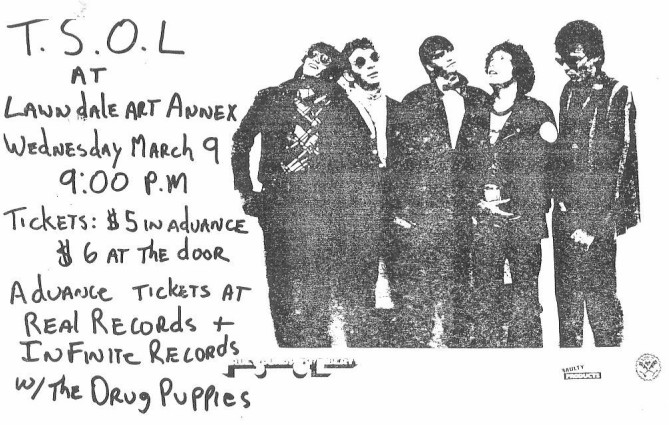 T.S.O.L
AT
LAWNdALE ART ANNEX
WEdNESdAy MARCH 9
9:00 P.M
TICKETS: $5 IN AdVANCE
$6 AT THE dOOR
AdVANCE TICKETS AT
REAL RECORdS +
INFINITE RECORdS
W/ THE DRUg PUPPIES
FAULTY
PRODUCTS